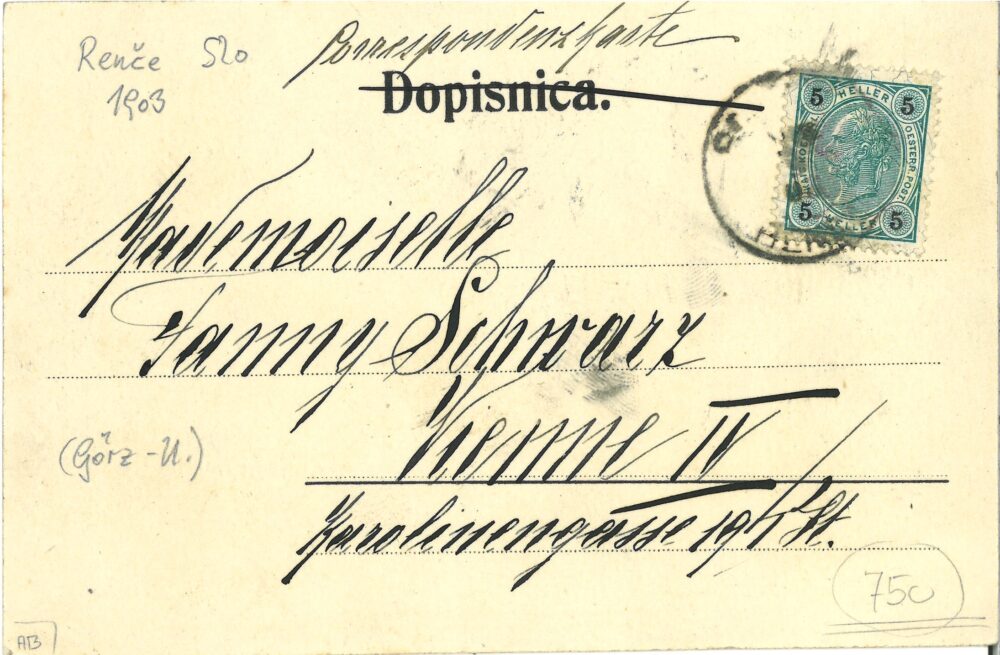 Renče Slo
1903
Correspondenzkarte
Dopisnica.
5 HELLER 5
OESTERR. POST.
5 HELLER 5
Mademoiselle
Fanny Schwarz
Vienne IV
(Görz - U.)
Karolinengasse 19/I St.
750
AB